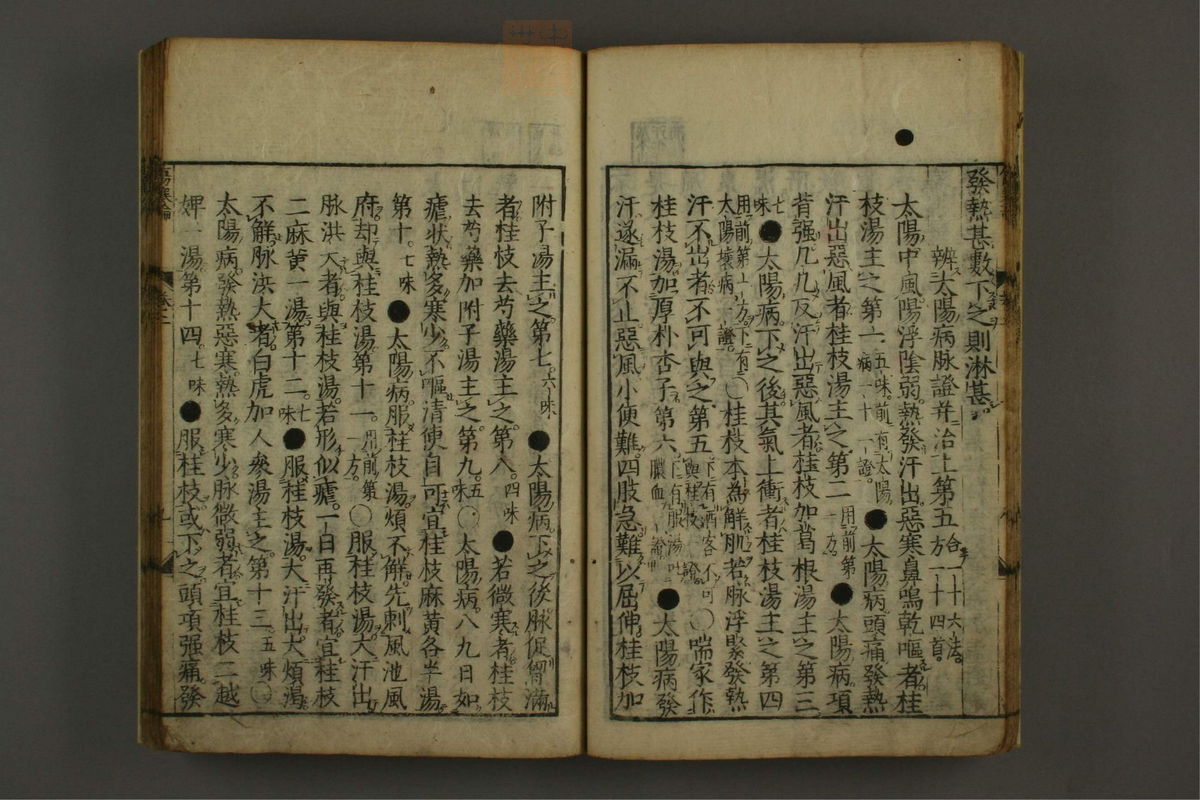 發熱甚數下之則淋甚
辨太陽病脉證并治上第五合一十六法方一十四首
太陽中風陽浮陰弱熱發汗出惡寒鼻鳴乾嘔者桂
枝湯主之第一五味前有太陽病一十一證●太陽病頭痛發熱
汗出惡風者桂枝湯主之第二用前第一方●太陽病項
背强几几反汗出惡風者桂枝加葛根湯主之第三
七味●太陽病下之後其氣上衝者桂枝湯主之第四
用前第一方下有太陽壞病一證○桂枝本爲解肌若脉浮緊發熱
汗不出者不可與之第五下有酒客不可與桂枝一證○喘家作
桂枝湯加厚朴杏子第六下有服湯吐膿血一證●太陽病發
汗遂漏不止惡風小便難四肢急難以屈伸桂枝加
附子湯主之第七六味●太陽病下之後脉促胷滿
者桂枝去芍藥湯主之第八四味●若微寒者桂枝
去芍藥加附子湯主之第九五味○太陽病八九日如
瘧狀熱多寒少不嘔清便自可宜桂枝麻黄各半湯
第十七味●太陽病服桂枝湯煩不解先刺風池風
府却與桂枝湯第十一用前第一方○服桂枝湯大汗出
脉洪大者與桂枝湯若形似瘧一日再發者宜桂枝
二麻黄一湯第十二七味●服桂枝湯大汗出大煩渴
不解脉洪大者白虎加人參湯主之第十三五味○
太陽病發熱惡寒熱多寒少脉微弱者宜桂枝二越
婢一湯第十四七味●服桂枝或下之頭項强痛發